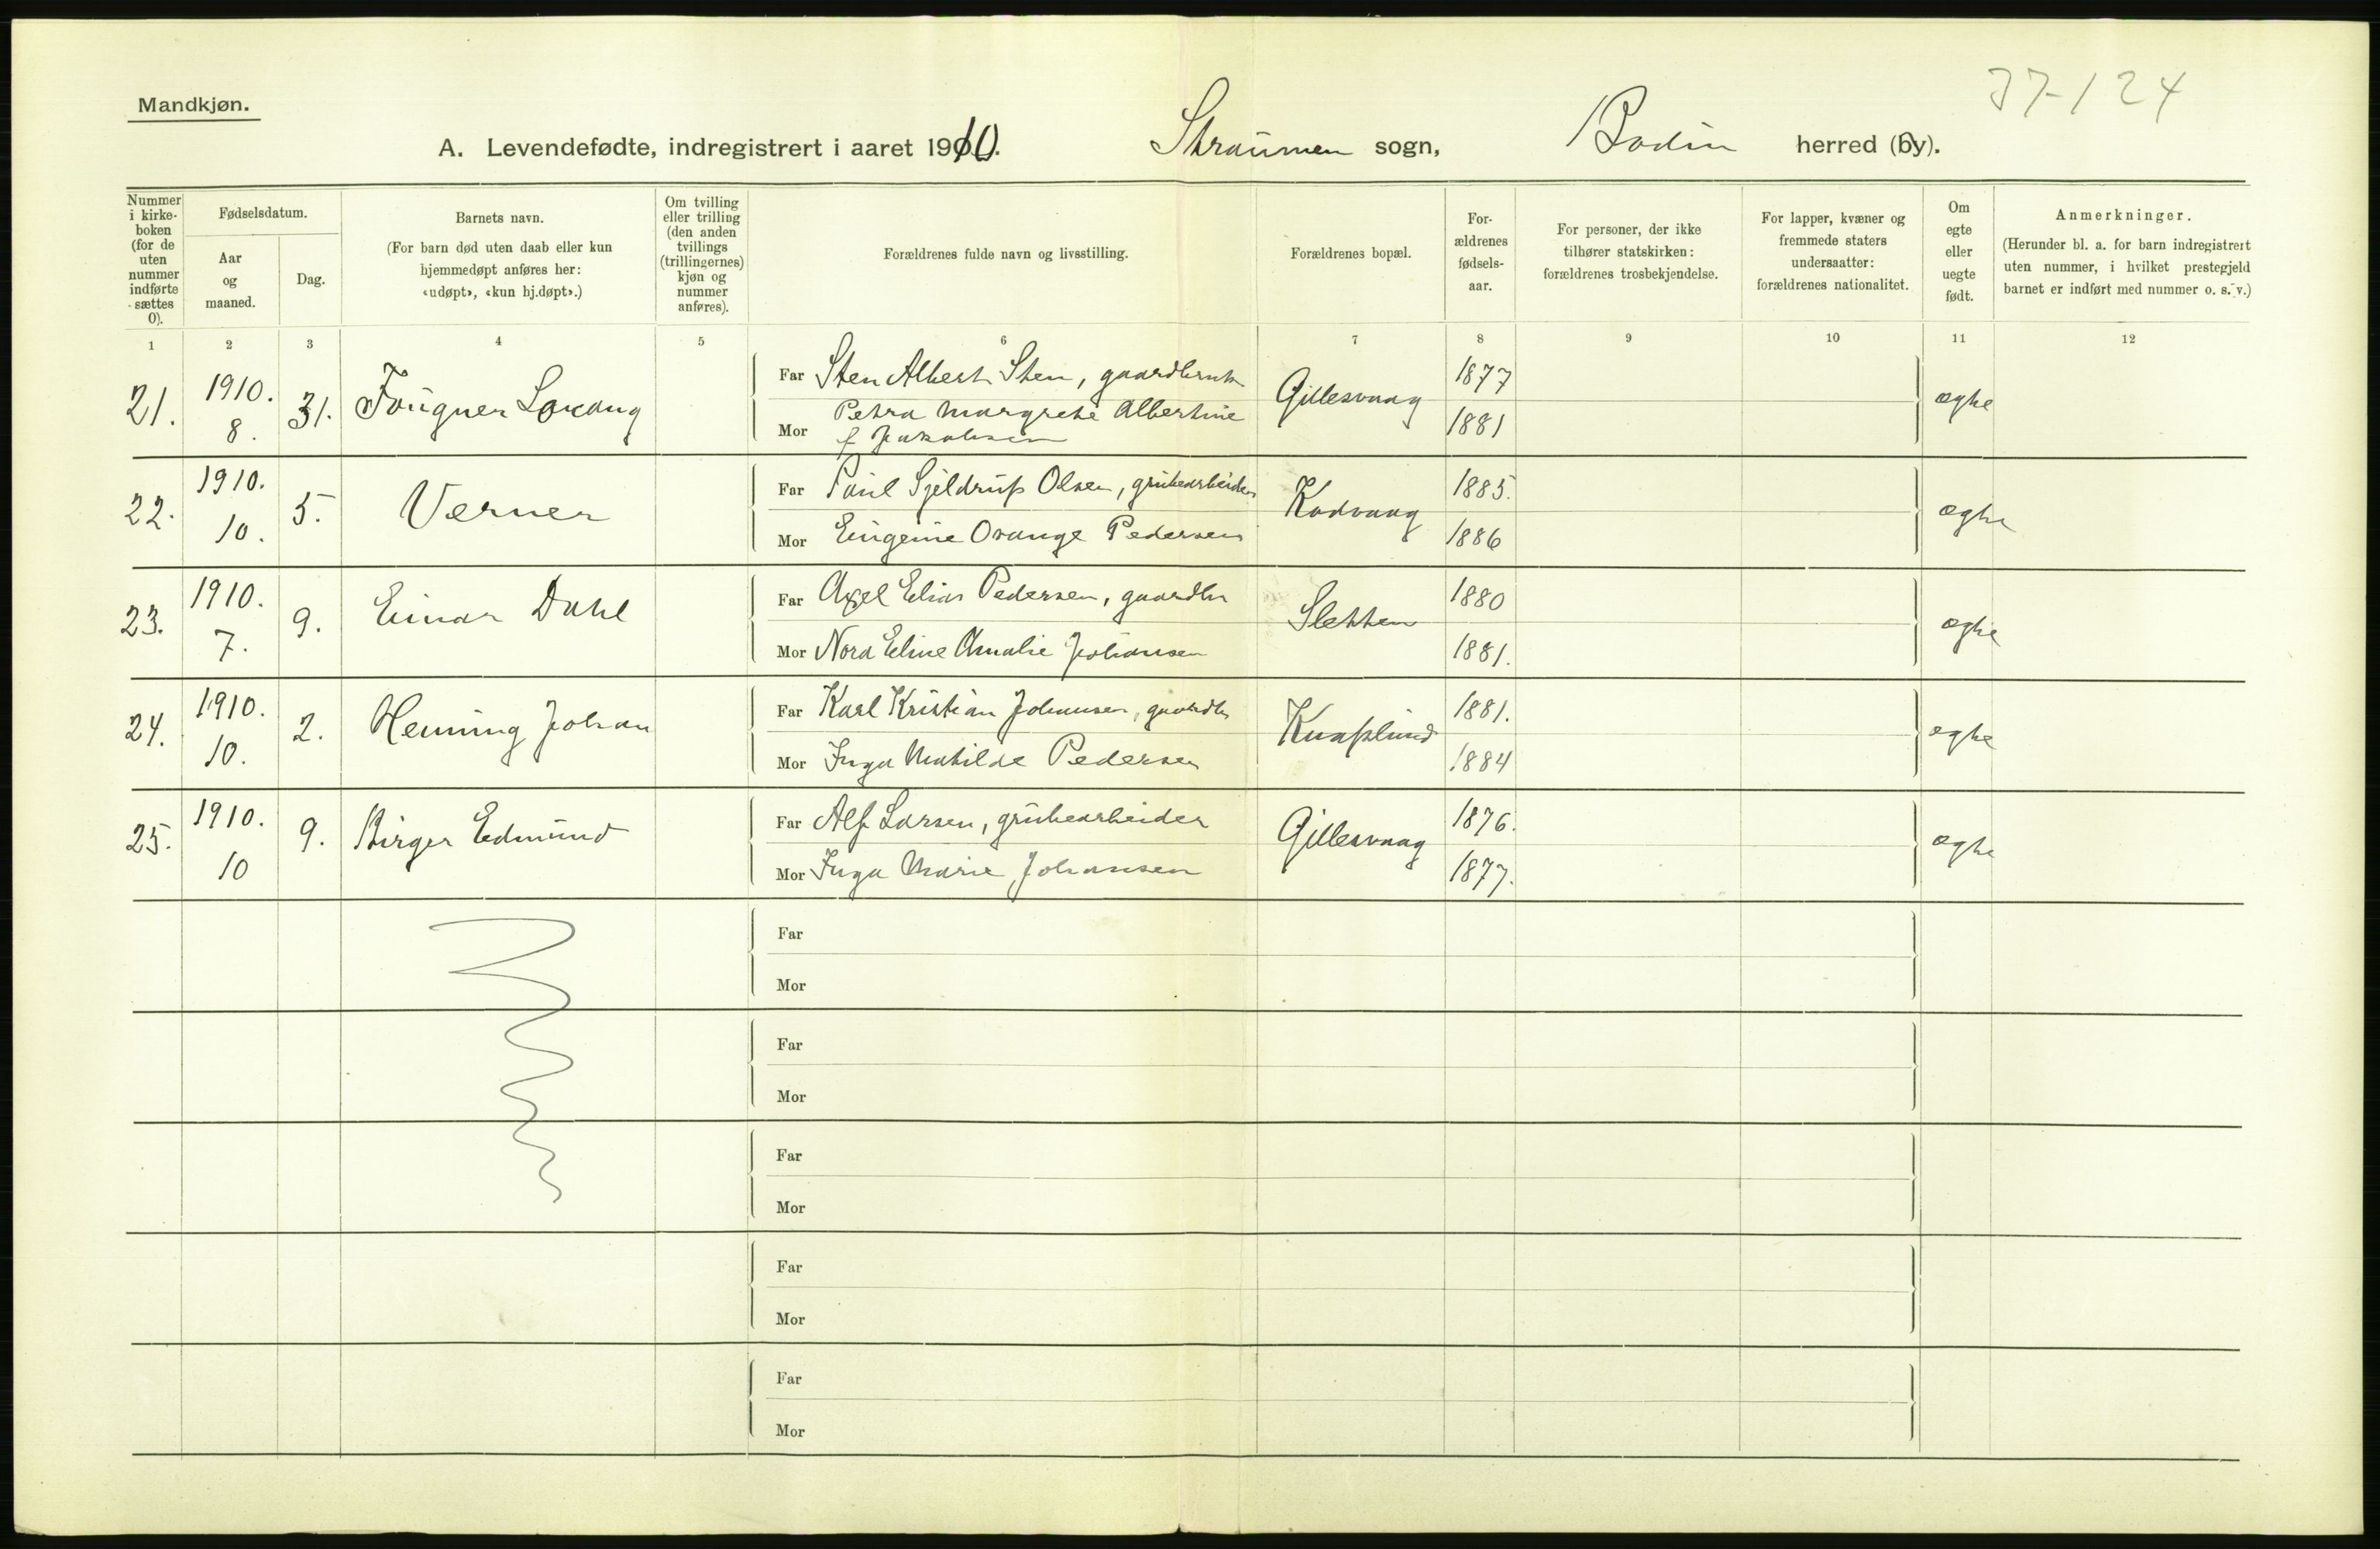 37-124
Mandkjøn.
A. Levendefødte, indregistrert i aaret 1910. Straumen sogn, Bodin herred (by).
Nummer i kirkeboken (for de uten nummer indførte sættes 0).
Fødselsdatum.
Aar og maaned.
Dag.
Barnets navn.
(For barn død uten daab eller kun hjemmedøpt anføres her: «udøpt», «kun hj.døpt».)
Om tvilling eller trilling (den anden tvillings (trillingernes) kjøn og nummer anføres).
Forældrenes fulde navn og livsstilling.
Forældrenes bopæl.
For-
ældrenes
fødsels-
aar.
For personer, der ikke
tilhører statskirken:
forældrenes trosbekjendelse.
For lapper, kvæner og
fremmede staters
undersaatter:
forældrenes nationalitet.
Om
egte
eller
uegte
født.
Anmerkninger.
(Herunder bl. a. for barn indregistrert
uten nummer, i hvilket prestegjeld
barnet er indført med nummer o. s. v.)
1 2 3 4 5 6 7 8 9 10 11 12
21. 1910. 8. 31. Fougner Loxang
Far Sten Albert Sten, gaardbruk. Gillesvaag 1877 ægte
Mor Petra Margrete Albertine
f Jakobsen 1881
22. 1910. 10. 5. Verner
Far Paul Sjeldrup Olsen, grubearbeider Kodvaag 1885. ægte
Mor Eugenie Orange Pedersen 1886
23. 1910. 7. 9. Einar Dahl
Far Axel Elias Pedersen, gaardbr Sletten 1880 ægte
Mor Nora Eline Amalie Johansen 1881.
24. 1910. 10. 2. Henning Johan
Far Karl Kristian Johansen, gaardbr Knaplund 1881. egte
Mor Inga Matilde Pedersen 1884
25. 1910. 10 9. Birger Edmund
Far Alf Larsen, grubearbeider Gillesvaag 1876. ægte
Mor Inga Marie Johansen 1877.
Far
Mor
Far
Mor
Far
Mor
Far
Mor
Far
Mor